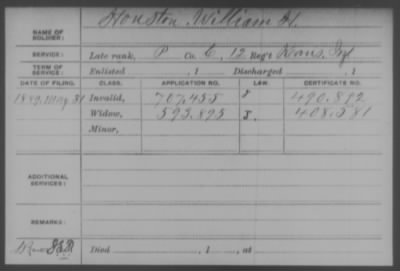 NAME OF SOLDIER:
Houston William H.
SERVICE:
Late rank, P Co. C, 12 Reg't Kans. Inf
TERM OF SERVICE:
Enlisted , 1 Discharged , 1
DATE OF FILING. CLASS. APPLICATION NO. LAW. CERTIFICATE NO.
1889, May 31 Invalid, 707.455 490.892
Widow, 593.895 408.581
Minor,
ADDITIONAL SERVICES:
REMARKS:
Died , 1 , at